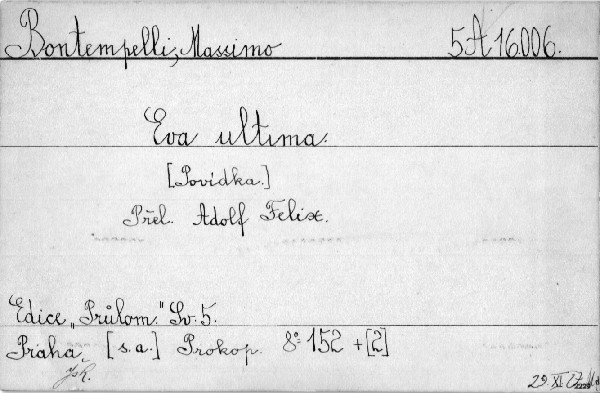 Bontempelli, Massimo 5A 16.006.
Eva ultima.
[Povídka.]
Přel. Adolf Felix.
Edice „Průlom." Sv. 5.
Praha, [s. a.] Prokop. 8° 152 + [2]
29. XI.